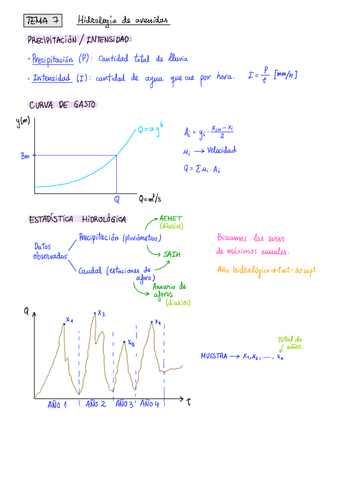 TEMA 7 Hidrología de avenidas
PRECIPITACIÓN / INTENSIDAD:
· Precipitación (P): cantidad total de lluvia
· Intensidad (I): cantidad de agua que cae por hora. I = P/t [mm/h]
CURVA DE GASTO
y(m)
Q = a y^b
3m
Q
Q=m³/s
A_i = y_i · (x_{i+1} - x_i)/2
u_i → velocidad
Q = Σ u_i · A_i
ESTADÍSTICA HIDROLÓGICA
AEMET
(diarios)
Precipitación (pluviómetros)
Datos
observados
SAIH
Caudal (estaciones de
aforo)
Anuario de
aforos.
(diarios)
Buscamos las series
de máximos anuales.
Año hidrológico → 1 oct - 30 sept
Q
x₁
x₂
x₃
x₄
t
AÑO 1
AÑO 2
AÑO 3
AÑO 4
Total de
años.
MUESTRA → x₁, x₂, ..., xₙ